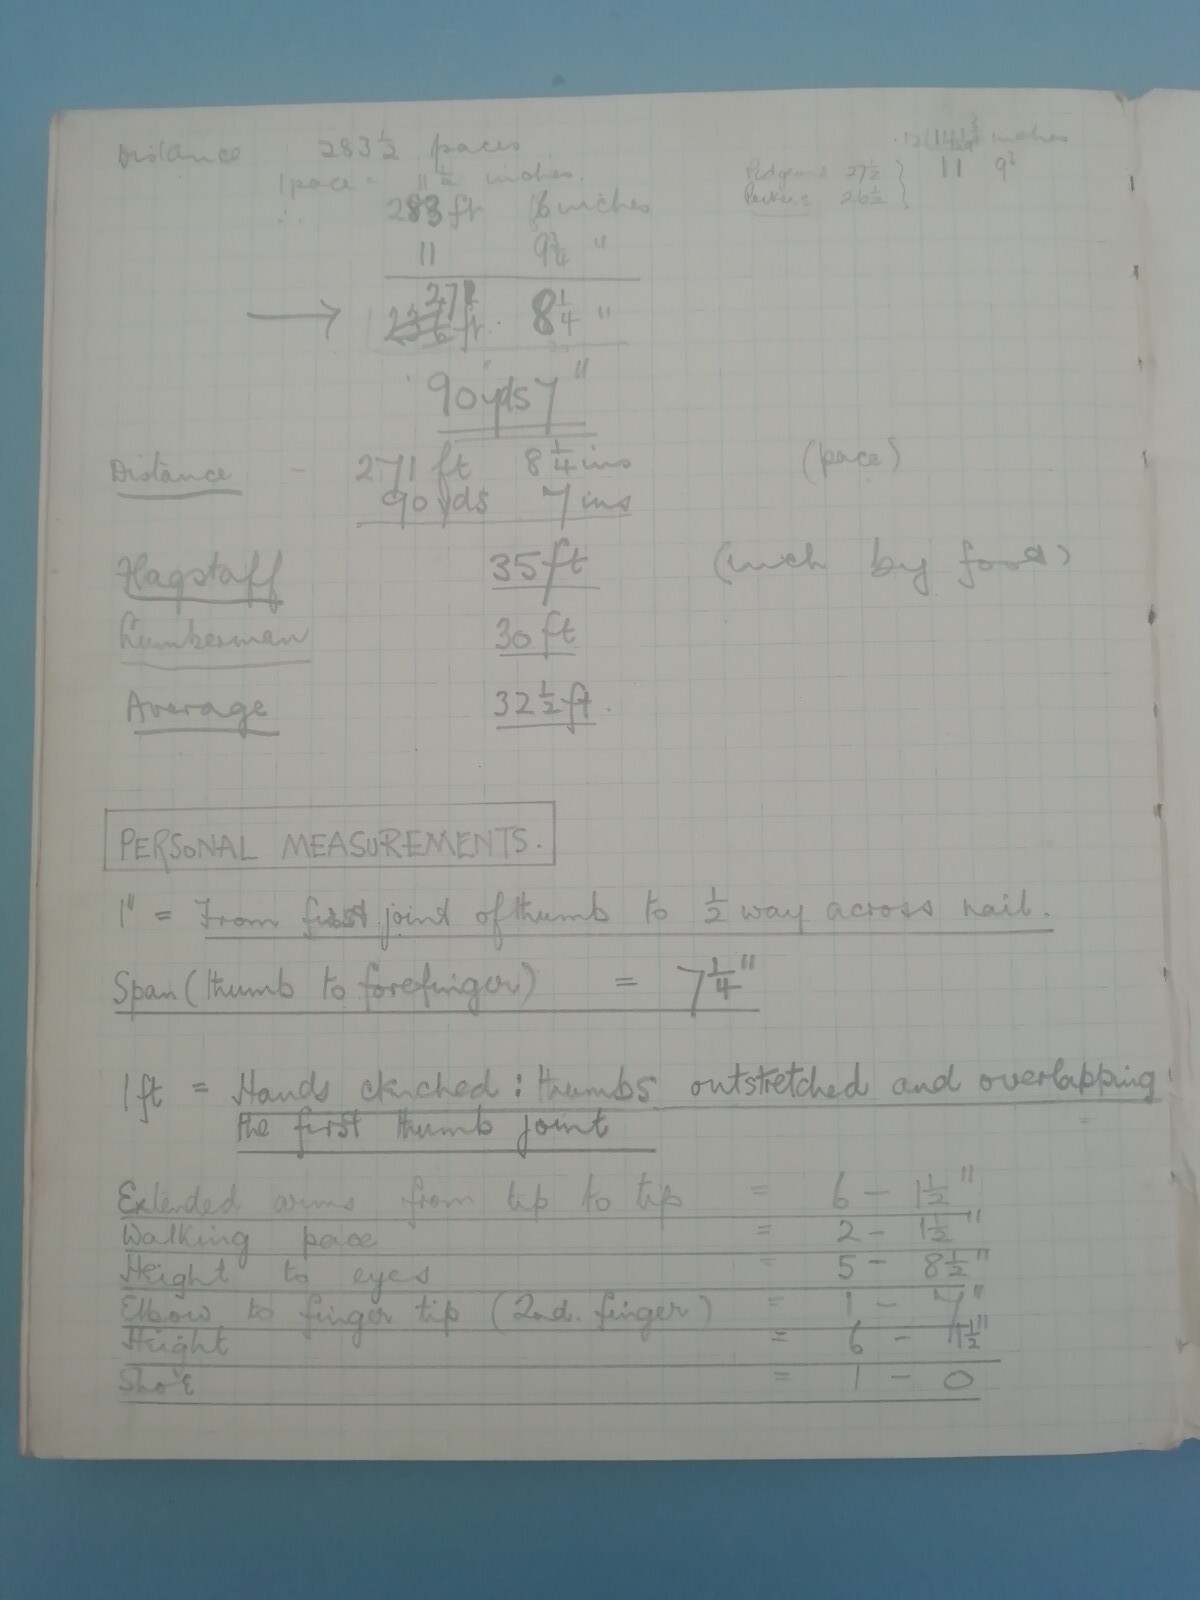 Distance 283½ paces
1 pace = 11½ inches.
∴ 283 ft 6 inches
11 9¾ "
→ 271 ft. 8¼ "
90 yds 7"
12(141¾ inches
27½ } 11 9¾
26½ }
Distance - 271 ft 8¼ ins (pace)
90 yds 7 ins
Flagstaff 35 ft (inch by foot)
Lumberman 30 ft
Average 32½ ft.
PERSONAL MEASUREMENTS.
1" = From first joint of thumb to ½ way across nail.
Span (thumb to forefinger) = 7¼"
1 ft = Hands clenched : thumbs outstretched and overlapping
the first thumb joint
Extended arms from tip to tip = 6 - 1½"
Walking pace = 2 - 1½"
Height to eyes = 5 - 8½"
Elbow to finger tip (2nd. finger) = 1 - 7"
Height = 6 - 1½"
Shoe = 1 - 0